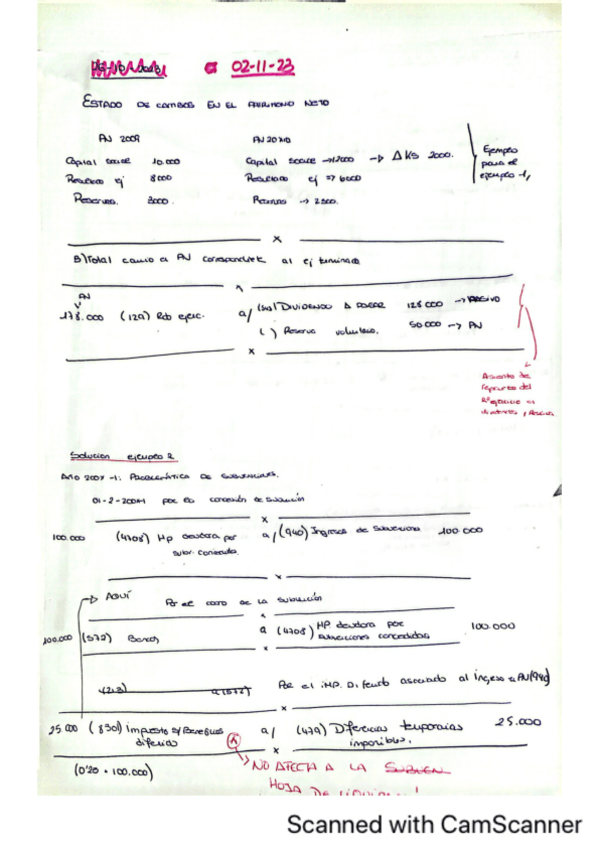 02-11-23
ESTADO DE CAMBIOS EN EL PATRIMONIO NETO
PN 200X PN 20X10
Capital social 10.000 Capital social → 12000 → Δ KS 2000. Ejemplo
Resultado ej 8000 Resultado ej => 6000 para el
Reservas. 3000. Reservas → 2500. ejemplo 1,
B) Total cambio a PN correspondiente al ej terminado
PN
178.000 (129) Rdo ejerc. a/ (526) DIVIDENDO A PAGAR 128 000 → PASIVO
( ) Reserva voluntaria. 50.000 → PN
Asiento de
reparto del
Rº ejercicio en
Solucion ejemplo 2
AÑO 200X-1: PROBLEMÁTICA DE SUBVENCIONES.
por la concesión de subvención
100.000 (4708) HP deudora por a/ (940) Ingresos de subvenciones 100.000
subv. concedida.
→ AQUÍ Por el cobro de la subvención
100.000 (572) Bancos a (4708) HP deudora por subvenciones concedidas 100.000
Por el IMP. Diferido asociado al ingreso a PN (940)
25.000 (830) impuesto s/ Beneficios diferido a/ (479) Diferencias temporarias imponibles. 25.000
(0'20 · 100.000)
NO AFECTA A LA
HOJA DE
Scanned with CamScanner